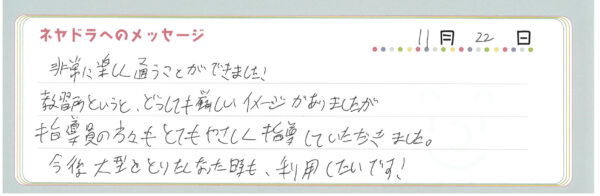 ネヤドラへのメッセージ
11月 22日
非常に楽しく通うことができました!
教習所というと、どうしても厳しいイメージがありましたが
指導員の方々もとてもやさしく指導していただきました。
今後大型をとりたくなった時も、利用したいです!